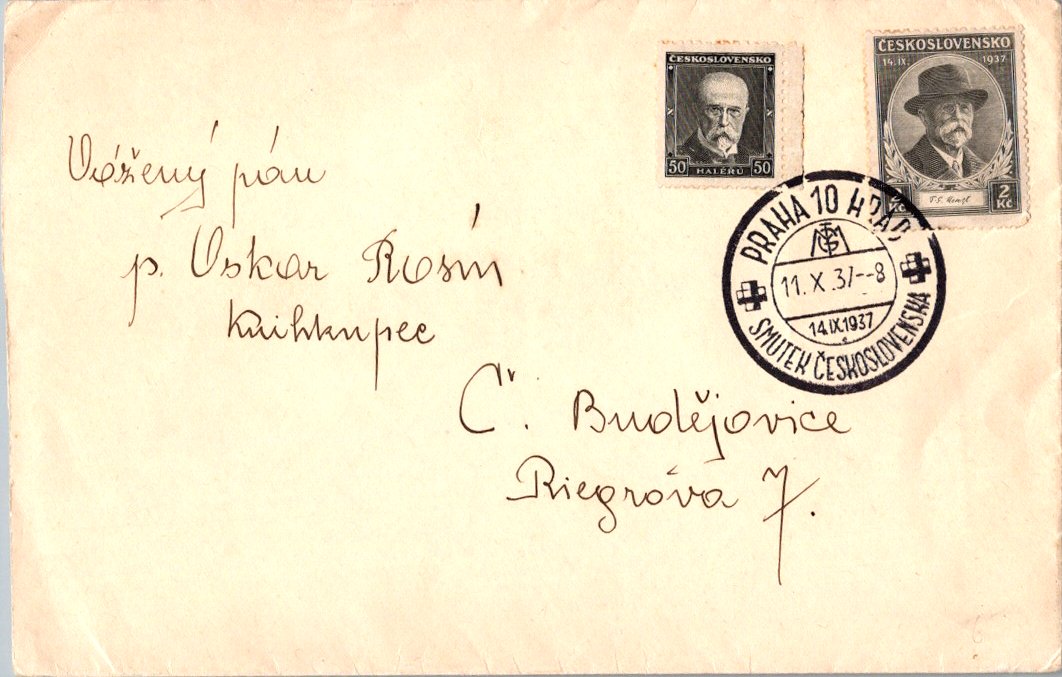 Vážený pán
p. Oskar Rosin
Knihkupec
Č. Budějovice
Riegrova 7.
ČESKOSLOVENSKO
50 HALÉŘŮ 50
ČESKOSLOVENSKO
14.IX. 1937
2
Kč Kč
PRAHA 10 HRAD
11.X.37--8
14.IX.1937
SMUTEK ČESKOSLOVENSKA